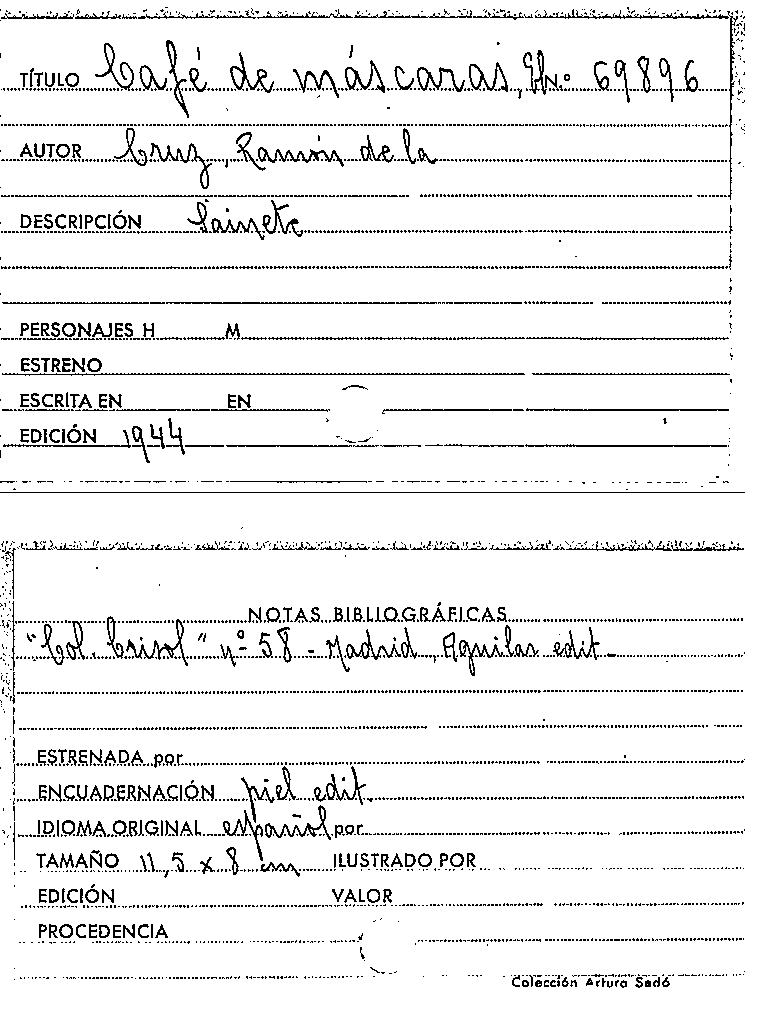 TÍTULO Café de máscaras, N.º 69896
AUTOR Cruz, Ramón de la
DESCRIPCIÓN Sainete
PERSONAJES H M
ESTRENO
ESCRITA EN EN
EDICIÓN 1944
NOTAS BIBLIOGRÁFICAS
"Col. Crisol" nº 58 - Madrid, Aguilar edit.
ESTRENADA por
ENCUADERNACIÓN piel edit.
IDIOMA ORIGINAL español por
TAMAÑO 11,5 x 8 cm ILUSTRADO POR
EDICIÓN VALOR
PROCEDENCIA
Colección Arturo Sedó